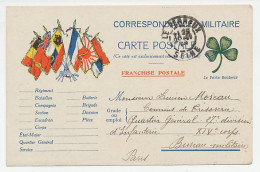 CORRESPONDANCE MILITAIRE
CARTE POSTALE
Ce côté est exclusivement réservé
LE PERREUX
SEINE
FRANCHISE POSTALE
Le Porte Bonheur
Régiment
Bataillon
Batterie
Compagnie
Brigade
Division
Section
Escadron
Pièce
Corps
État-Major
Quartier Général
Service
Grade
ou
emploi
Monsieur Lucien Moreau
Quartier Général 27e division
d'Infanterie XIVe corps
Bureau militaire
Paris